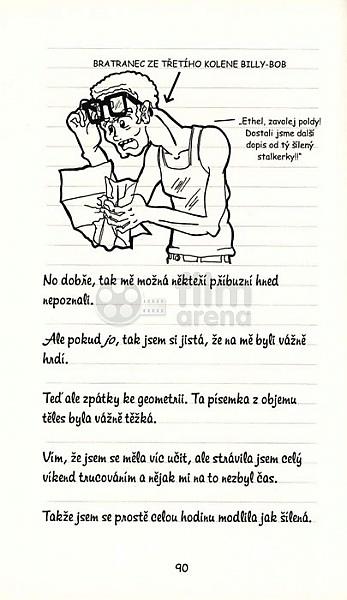 BRATRANEC ZE TŘETÍHO KOLENE BILLY-BOB
„Ethel, zavolej poldy!
Dostali jsme další
dopis od tý šílený
stalkerky!!“
No dobře, tak mě možná někteří příbuzní hned
nepoznali.
film
arena
Ale pokud jo, tak jsem si jistá, že na mě byli vážně
hrdí.
Teď ale zpátky ke geometrii. Ta písemka z objemu
těles byla vážně těžká.
Vím, že jsem se měla víc učit, ale strávila jsem celý
víkend trucováním a nějak mi na to nezbyl čas.
Takže jsem se prostě celou hodinu modlila jak šílená.
90